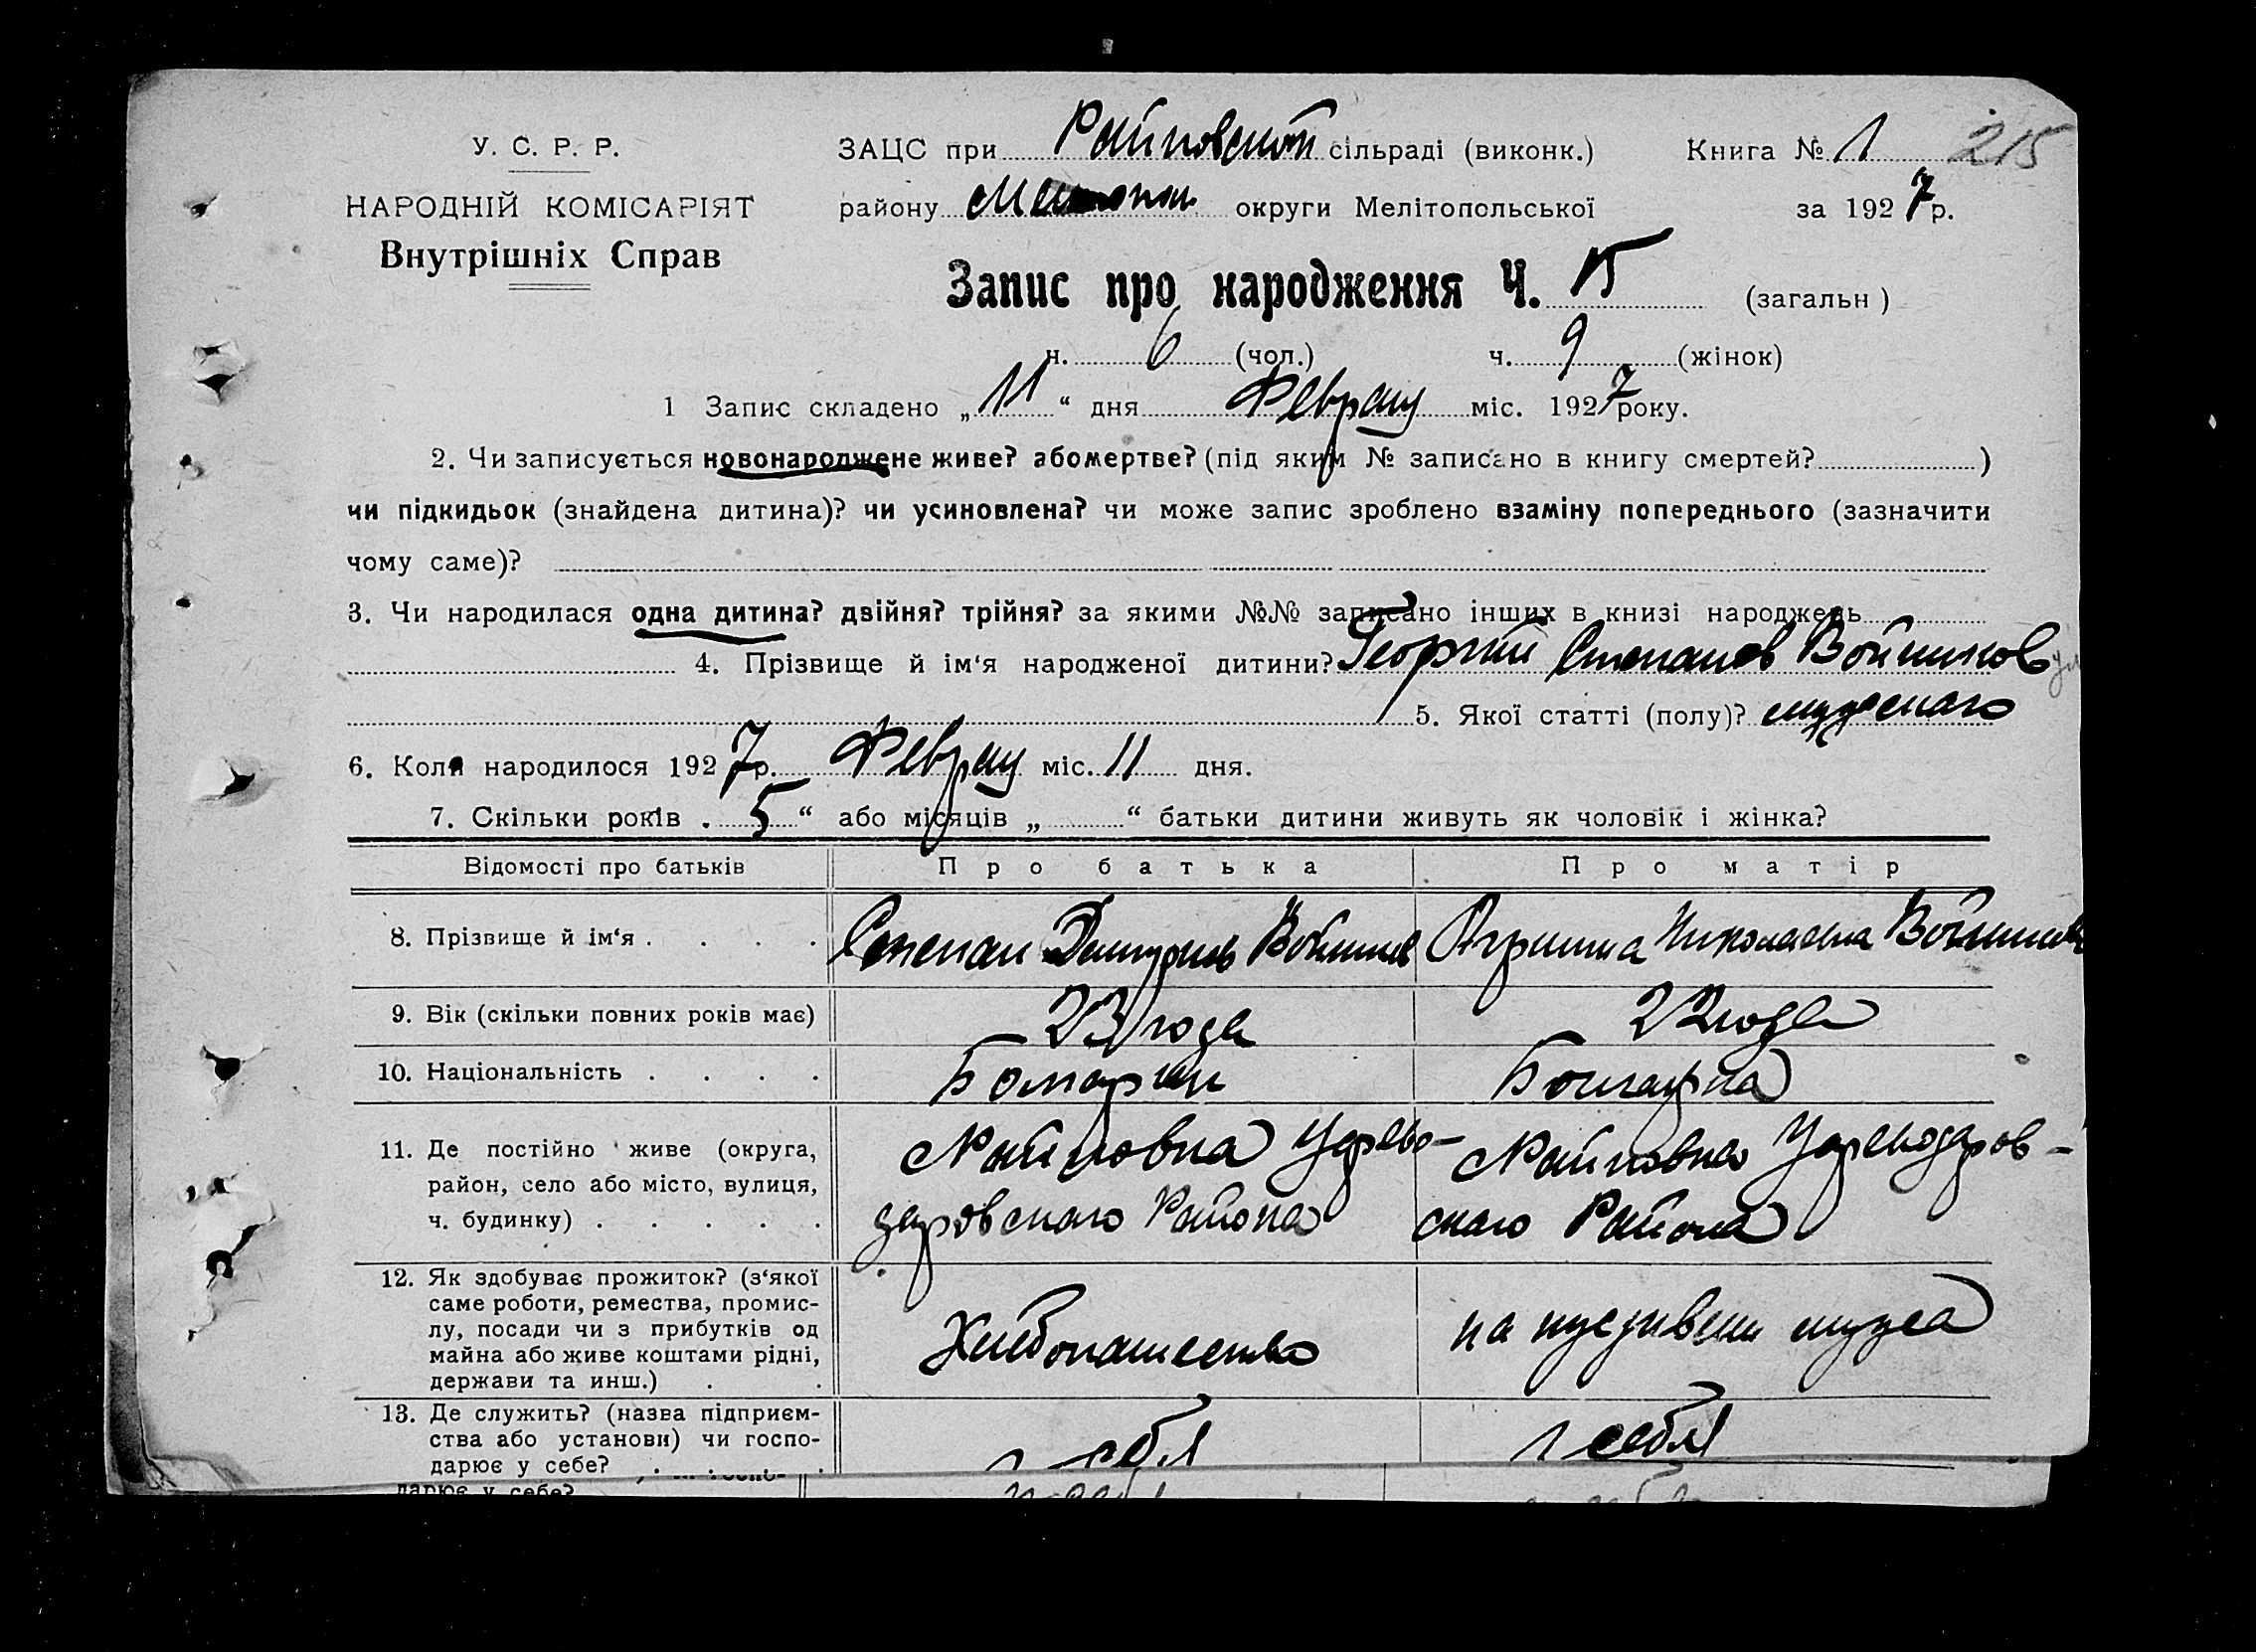 У. С. Р. Р.
НАРОДНІЙ КОМІСАРІЯТ
Внутрішніх Справ
ЗАЦС при Райновской сільраді (виконк.) Книга № 1 215
району округи Мелітопольської за 1927 р.
Запис про народження Ч. 15 (загальн)
н. 6 (чол.) ч. 9 (жінок)
1 Запис складено „11“ дня Февраля міс. 1927 року.
2. Чи записується новонароджене живе? або мертве? (під яким № записано в книгу смертей? )
чи підкидьок (знайдена дитина)? чи усиновлена? чи може запис зроблено взаміну попереднього (зазначити
чому саме)?
3. Чи народилася одна дитина? двійня? трійня? за якими №№ записано інших в книзі народжень
4. Прізвище й ім‘я народженої дитини? Георгий Степанов Войников
5. Якої статті (полу)? мужескаго
6. Коли народилося 1927 р. Февраля міс. 11 дня.
7. Скільки років „5“ або місяців „ “ батьки дитини живуть як чоловік і жінка?
Відомості про батьків Про батька Про матір
8. Прізвище й ім‘я . . . . Степан Дмитриев Войников Николаевна Войникова
9. Вік (скільки повних років має) 23 года 22 года
10. Національність . . . . Болгарин Болгарка
11. Де постійно живе (округа,
район, село або місто, вулиця,
ч. будинку) . . . . .
Райновка Царево-
даровскаго Района
Райновка Цареводаров-
скаго Района
12. Як здобуває прожиток? (з‘якої
саме роботи, ремества, промис-
лу, посади чи з прибутків од
майна або живе коштами рідні,
держави та инш.) . .
Хлебопашество на иждивении мужа
13. Де служить? (назва підприєм-
ства або установи) чи госпо-
дарює у себе? . . .
у себя у себя
дарює у себе?